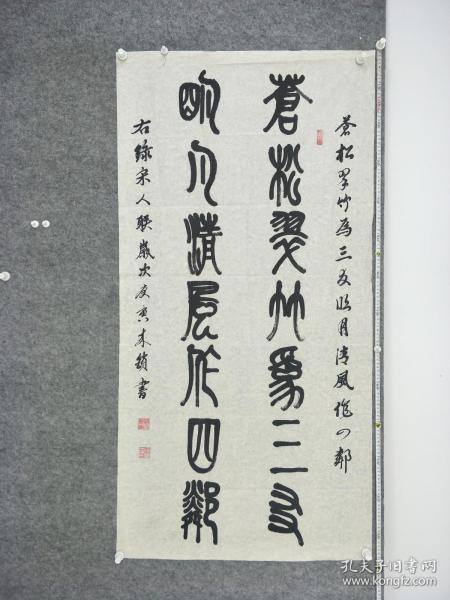 蒼松翠竹為三友明月清風作四鄰
蒼松翠竹為三友
明月清風作四鄰
右錄宋人聯歲次庚寅
書
孔夫子旧书网
www.kongfz.com